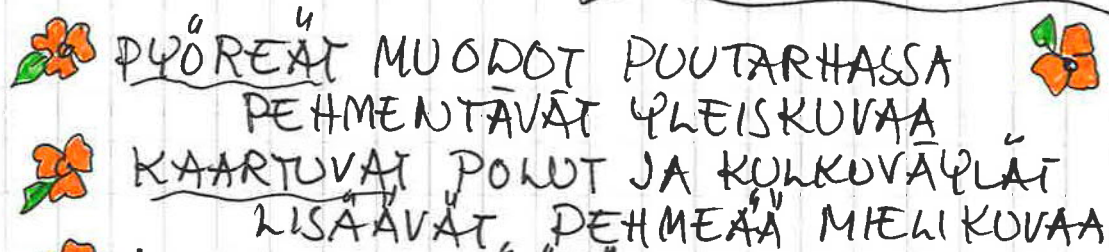 PYÖREÄT MUODOT PUUTARHASSA
PEHMENTÄVÄT YLEISKUVAA
KAARTUVAT POLUT JA KULKUVÄYLÄT
LISÄÄVÄT PEHMEÄÄ MIELIKUVAA